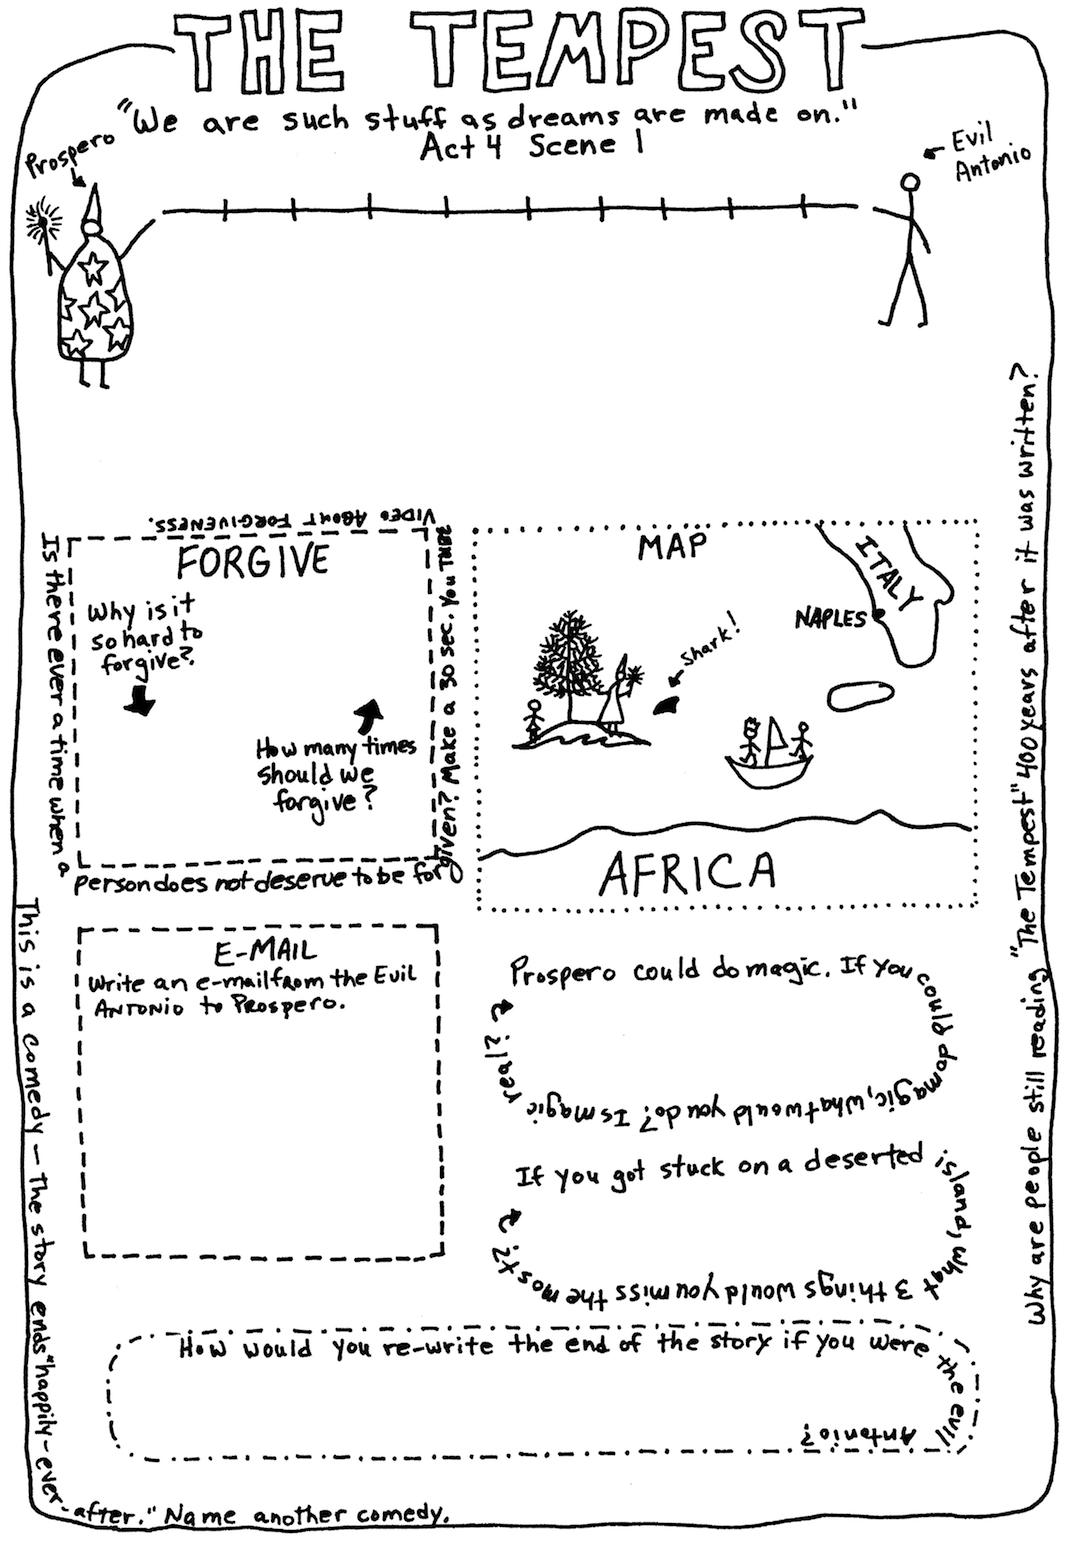 THE TEMPEST
"We are such stuff as dreams are made on."
Act 4 Scene 1
Prospero
Evil
Antonio
FORGIVE
Why is it
so hard to
forgive?
How many times
should we
forgive?
Is there ever a time when a
person does not deserve to be for
given? Make a 30 sec. YouTube
Video About Forgiveness.
MAP
ITALY
NAPLES
Shark!
AFRICA
E-MAIL
Write an e-mail from the Evil
ANTONIO to Prospero.
Prospero could do magic. If you
could do
magic, what would you do? Is magic
real?
If you got stuck on a deserted
island, what
3 things would you miss the
most?
How would you re-write the end of the story if you were
the evil
Antonio?
This is a comedy — the story ends "happily-ever
-after." Name another comedy.
Why are people still reading "The Tempest" 400 years after it was written?